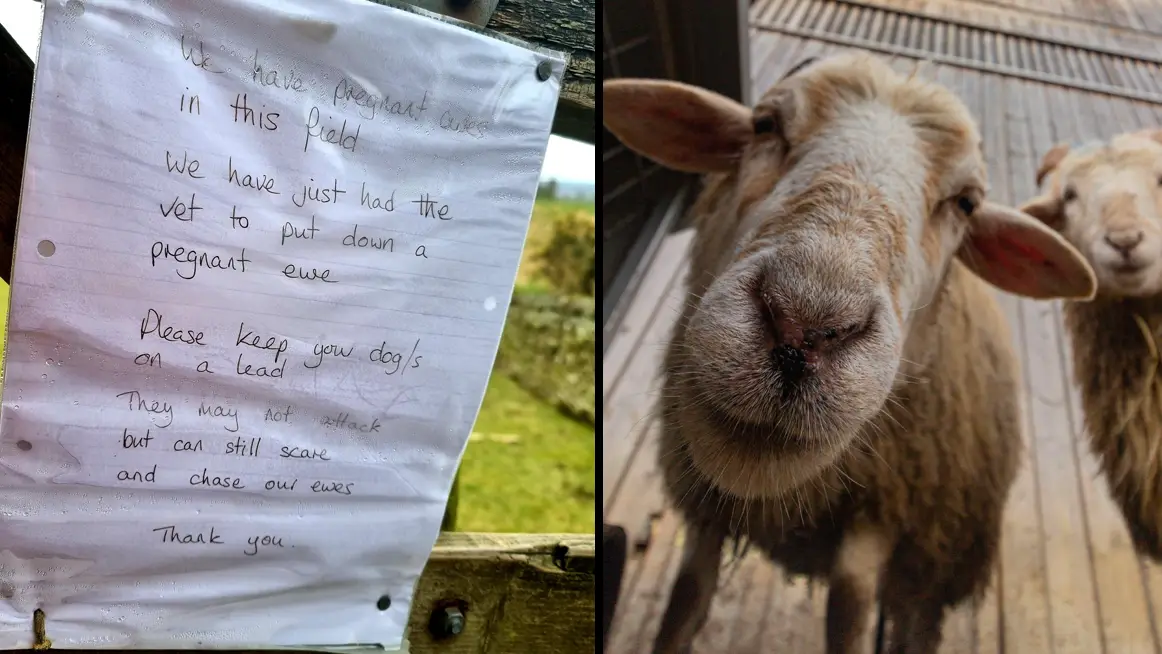 We have pregnant ewes
in this field
We have just had the
vet to put down a
pregnant ewe
Please keep your dog/s
on a lead
They may not attack
but can still scare
and chase our ewes
Thank you.